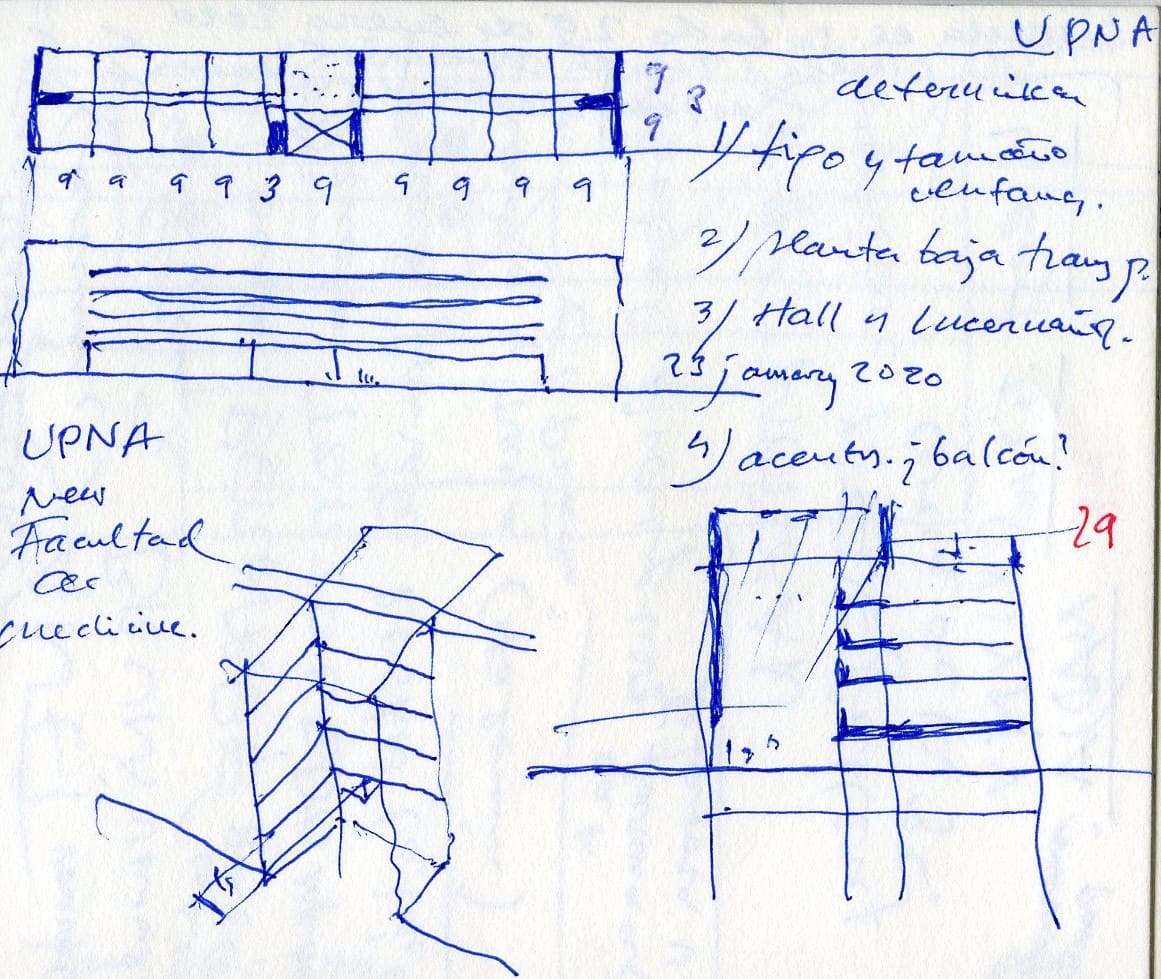 UPNA
determinar
9
3
9
1) tipo y tamaño
ventana.
9 9 9 9 3 9 9 9 9 9
2) planta baja transp.
3) Hall y lucernario.
23 january 2020
4) acentos. ¿balcón?
UPNA
New
Facultad
de
medicine.
29